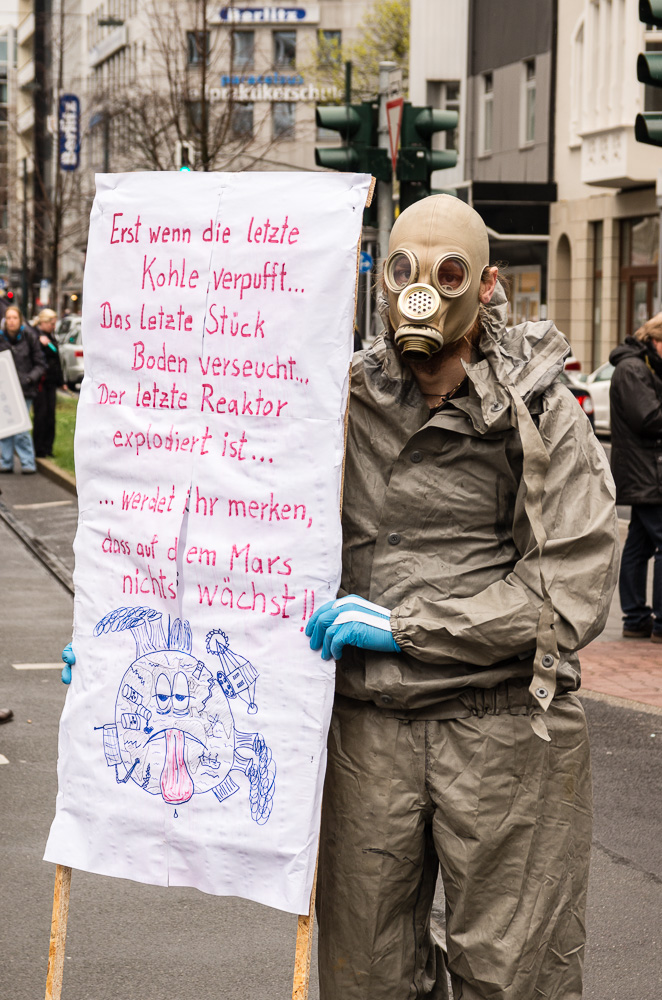 Berlitz
praktikerschule
Berlitz
Erst wenn die letzte
Kohle verpufft...
Das letzte Stück
Boden verseucht...
Der letzte Reaktor
explodiert ist...
... werdet ihr merken,
dass auf dem Mars
nichts wächst!!